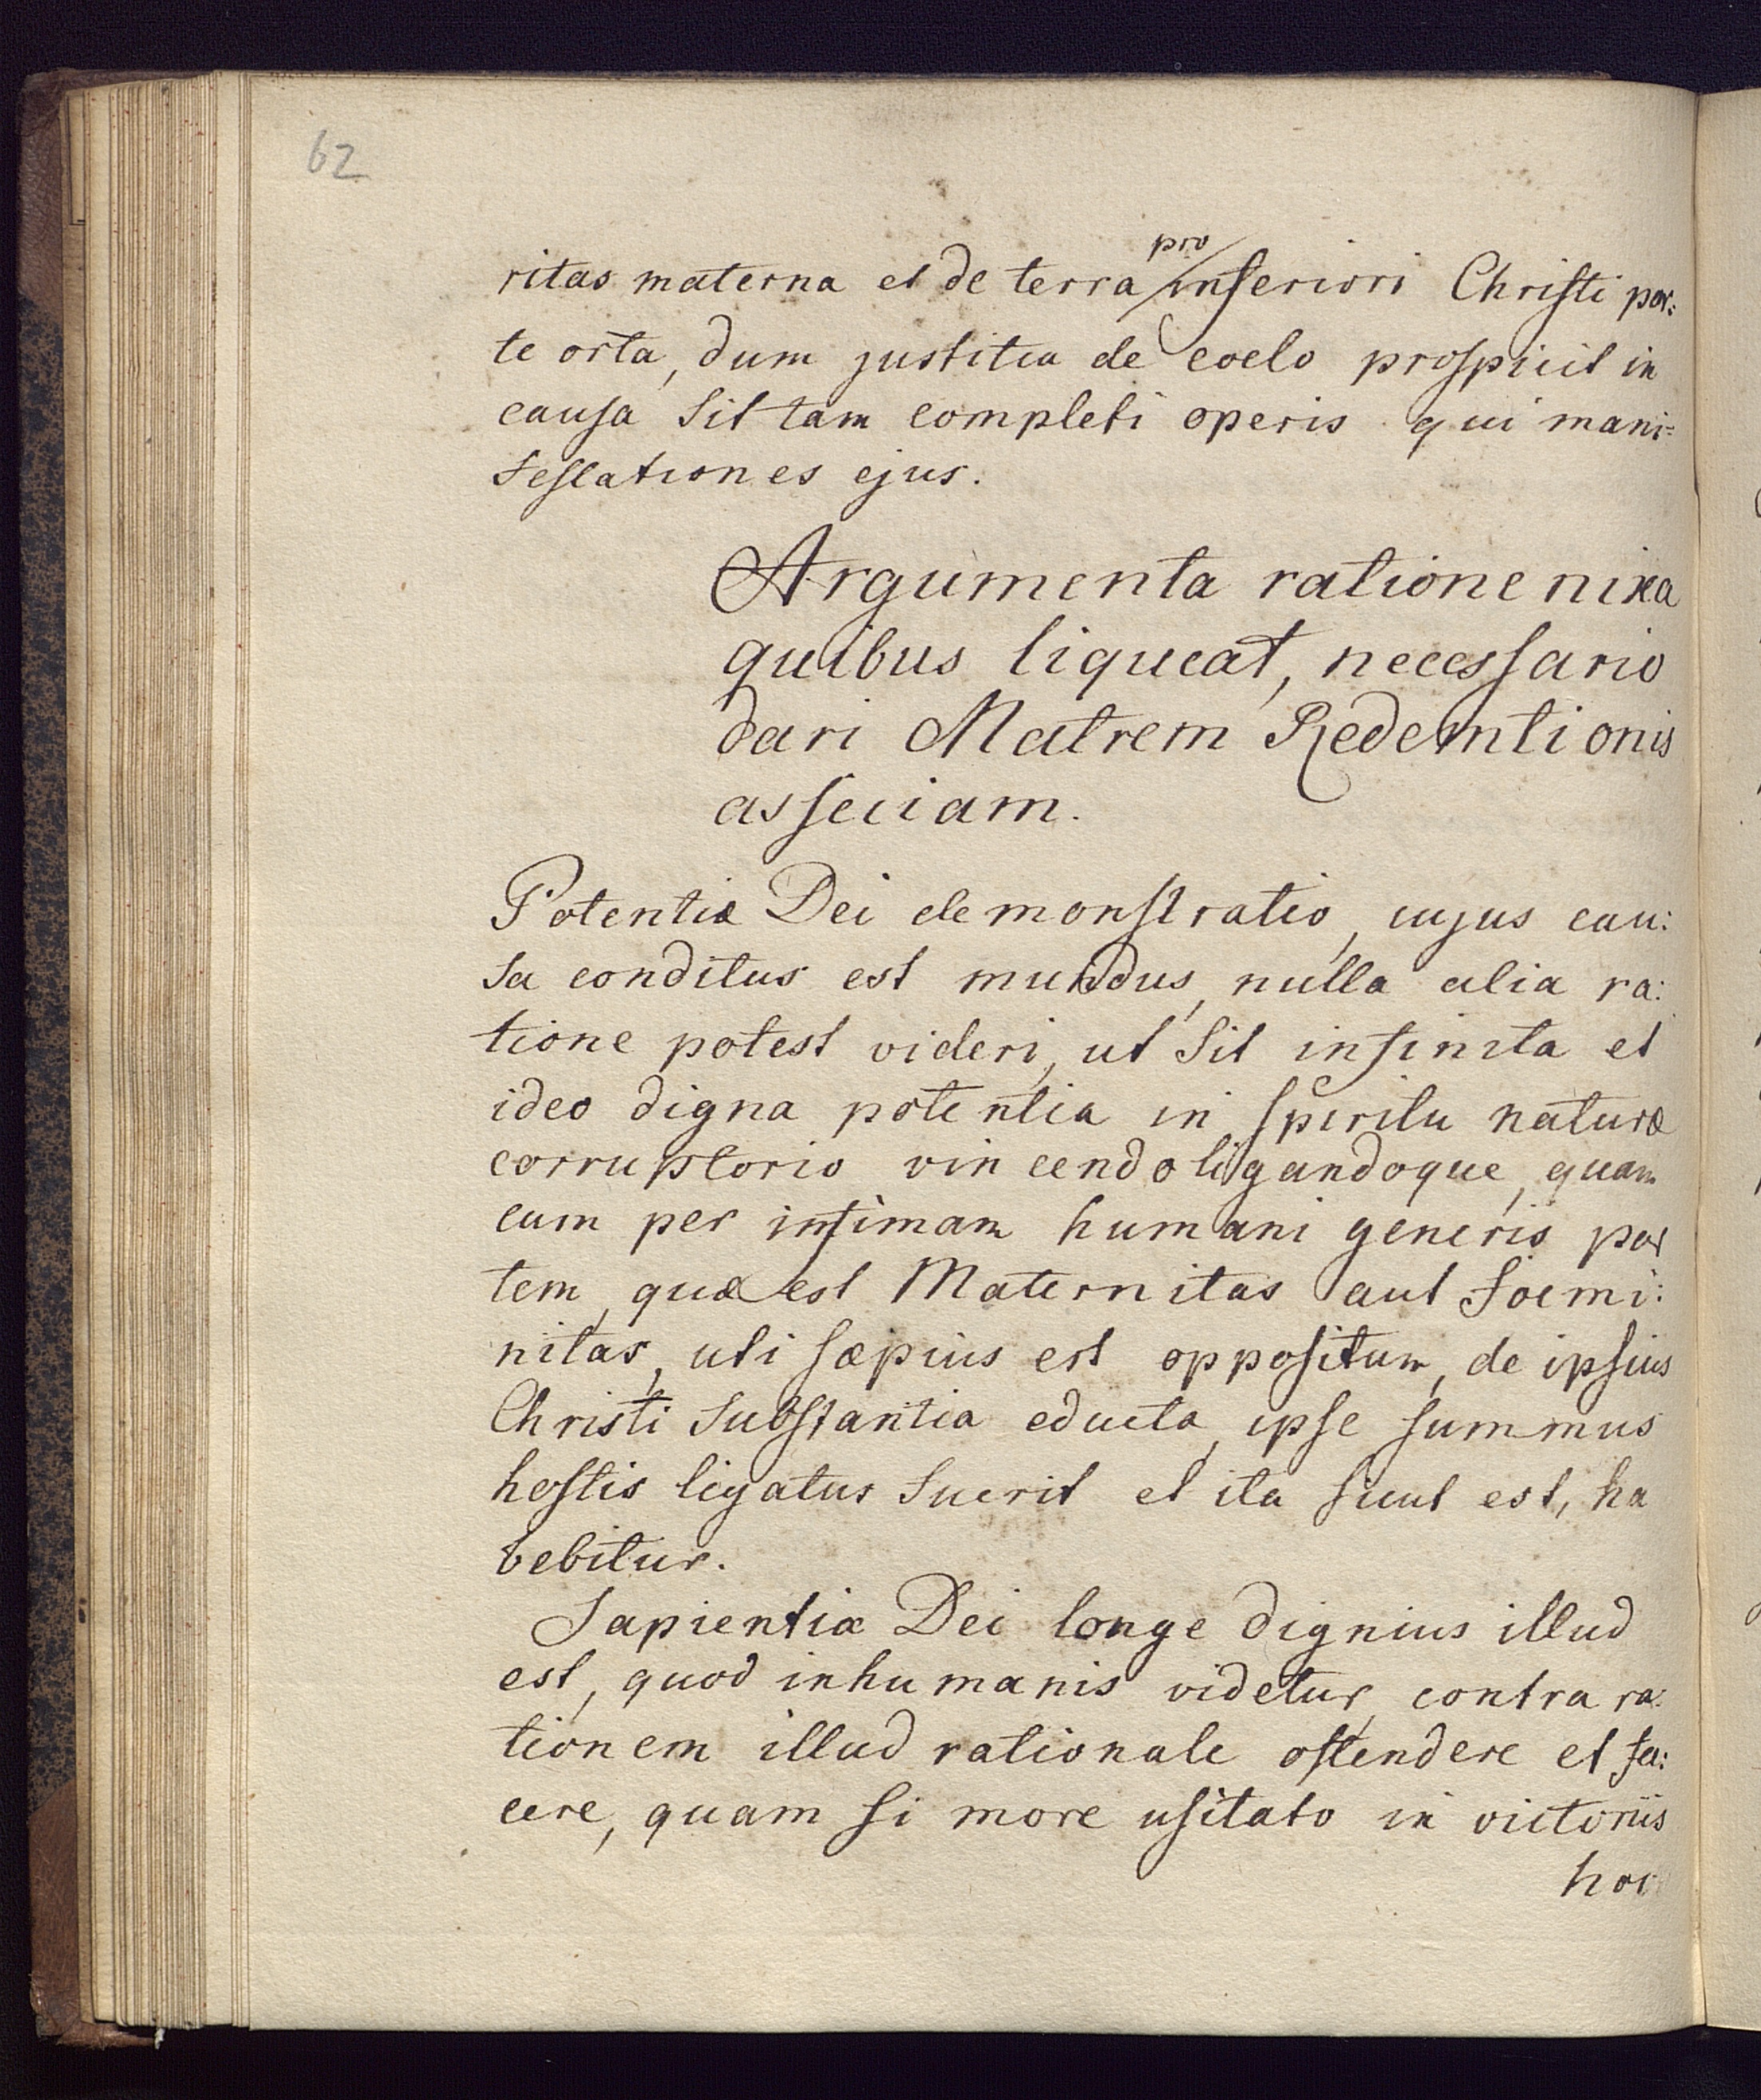 62
pro
ritas materna et de terra inferiori Christi par:
te orta, dum justitia de coelo prospicit in
causa sit tam completi operis qui mani=
festationes ejus.
Argumenta ratione nixa
quibus liqueat, necessario
dari Matrem Redemtionis
asseciam.
Potentiæ Dei demonstratio, cujus cau:
sa conditus est mundus, nulla alia ra:
tione potest videri, ut sit infinita et
ideo digna potentia in spiritu naturæ
corruptorio vincendo ligandoque, quam
cum per infimam humani generis par
tem, quæ est Maternitas aut foemi:
nitas, uti sæpius est oppositum, de ipsius
Christi substantia educta, ipse summus
hostis ligatus fuerit et ita sicut est, ha
bebitur.
Sapientiæ Dei longe dignius illud
est, quod inhumanis videtur, contra ra:
tionem illud rationale ostendere et fa:
cere, quam si more usitato in victoriis
hoc